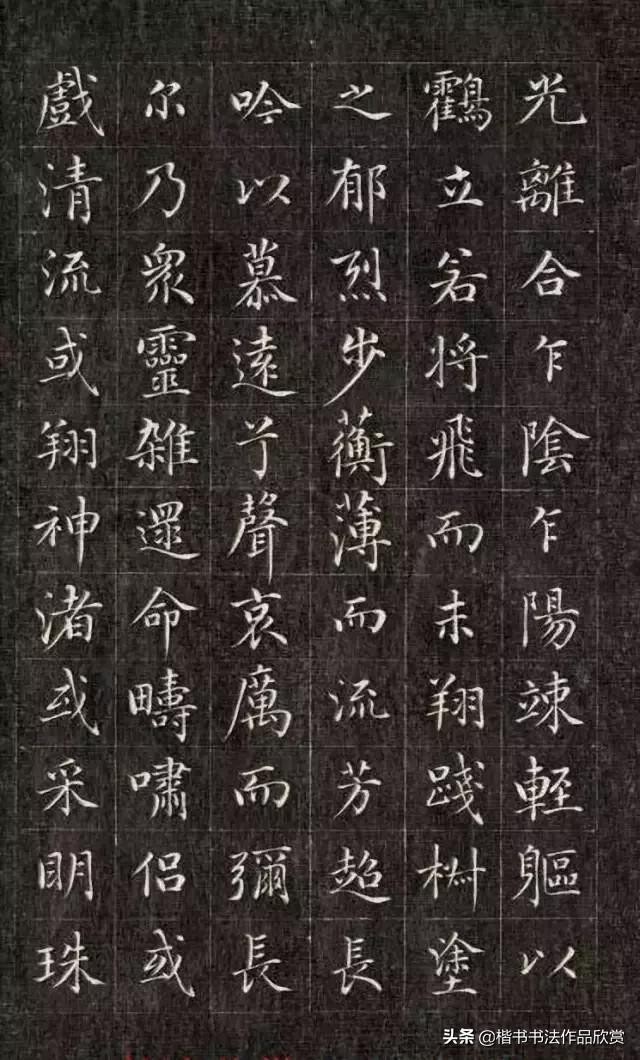 光離合乍陰乍陽竦輕軀以
鸖立若将飛而未翔踐椒塗
之郁烈步蘅薄而流芳超長
吟以慕遠兮聲哀厲而彌長
尔乃衆靈雜遝命疇嘯侣或
戲清流或翔神渚或采明珠
头条@楷书书法作品欣赏